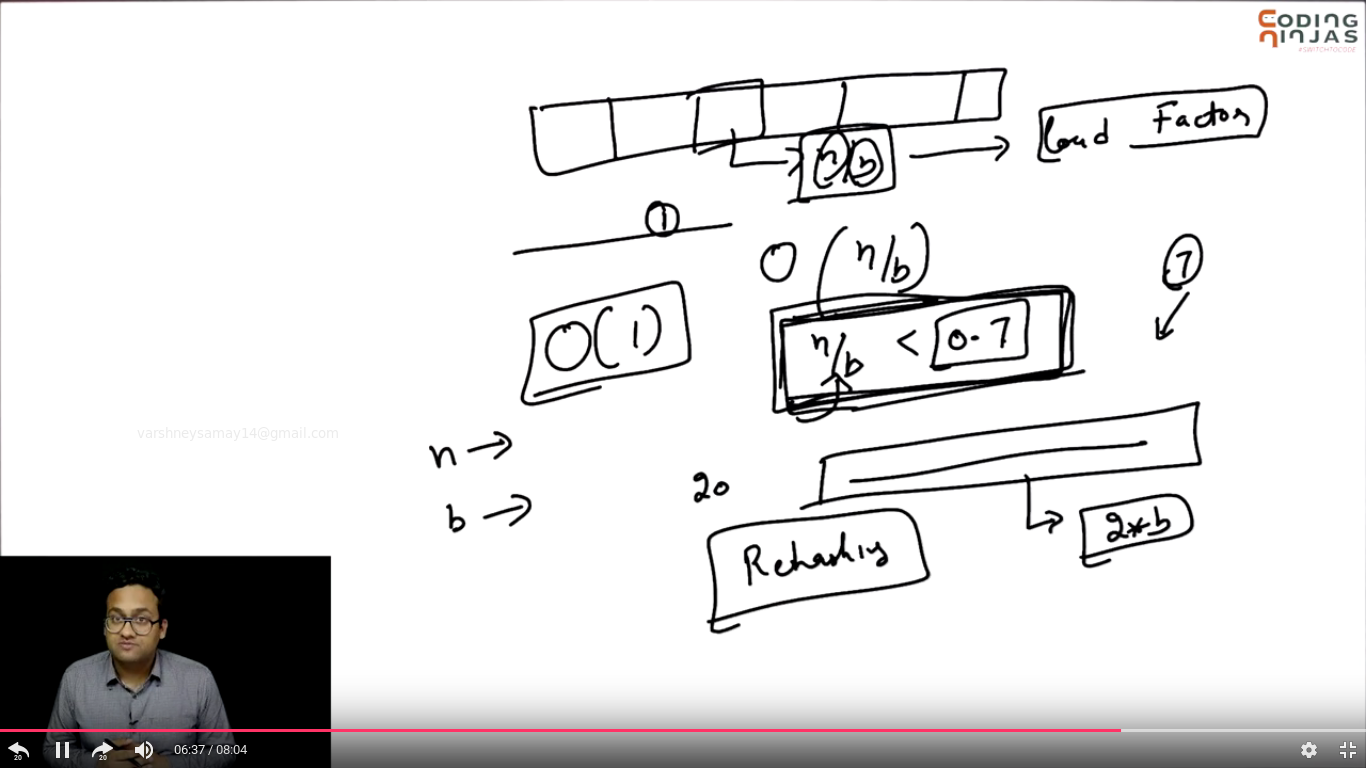 CODING
NINJAS
#SWITCHTOCODE
n b
Load Factor
1
O (n/b)
7
O(1)
n/b < 0.7
varshneysamay14@gmail.com
n →
b →
20
2*b
Rehashing
20
20
06:37 / 08:04